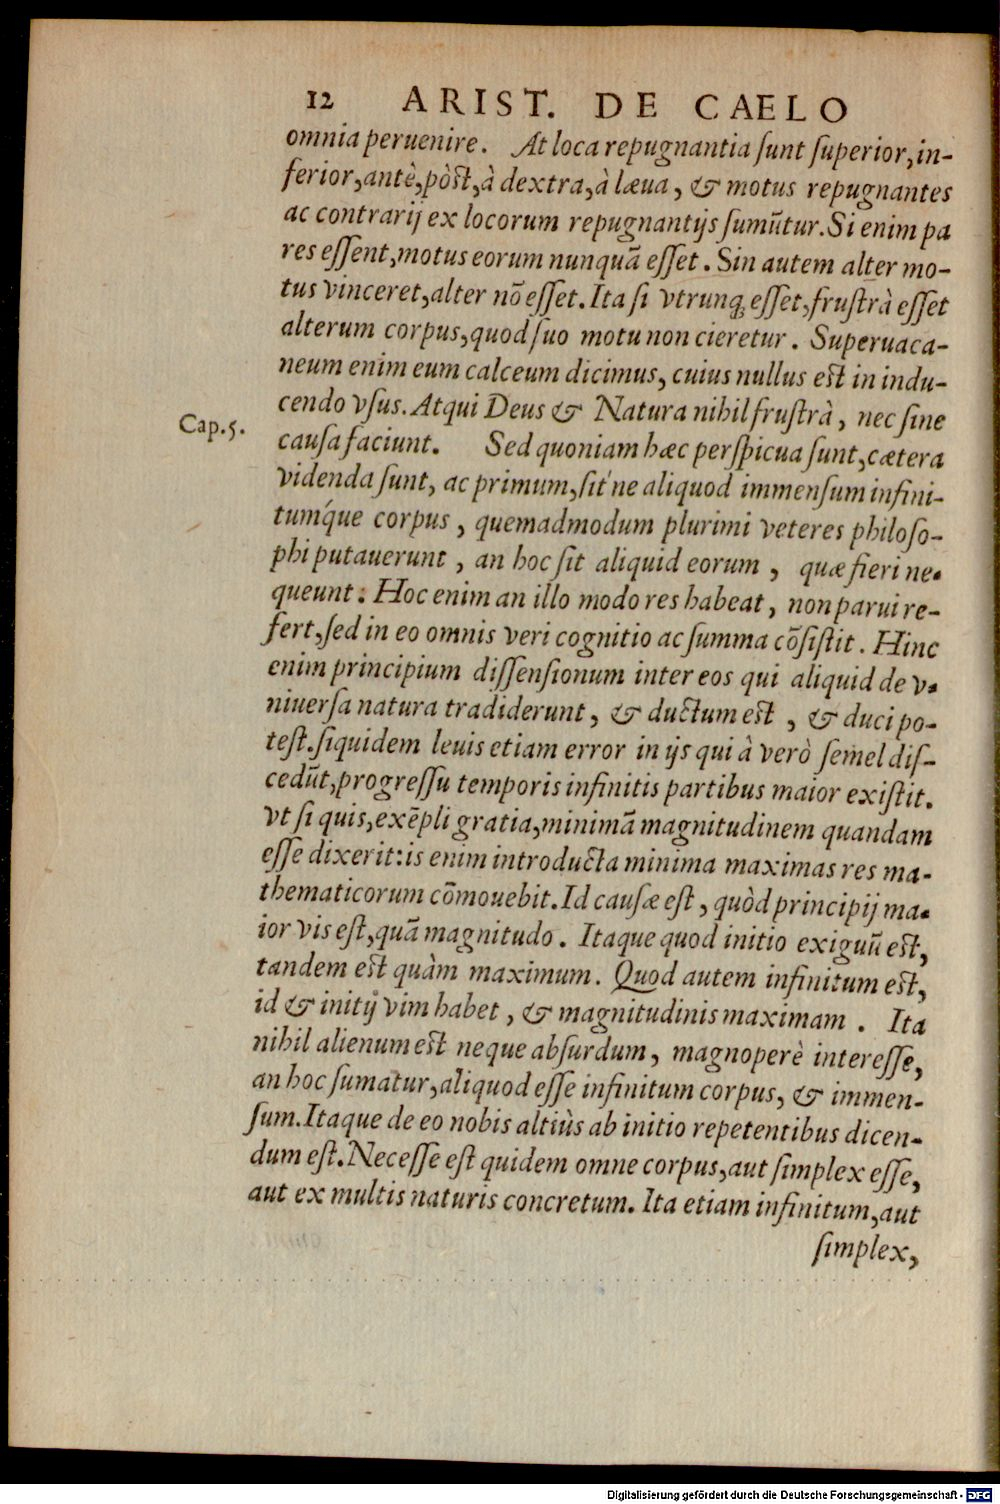 12 ARIST. DE CAELO
omnia peruenire. At loca repugnantia ſunt ſuperior, in-
ferior, antè, pòst, à dextra, à læua, & motus repugnantes
ac contrarij ex locorum repugnantijs ſumũtur. Si enim pa
res eſſent, motus eorum nunquã eſſet. Sin autem alter mo-
tus vinceret, alter nõ eſſet. Ita ſi vtrunq; eſſet, fruſtrà eſſet
alterum corpus, quod ſuo motu non cieretur. Superuaca-
neum enim eum calceum dicimus, cuius nullus est in indu-
cendo vſus. Atqui Deus & Natura nihil fruſtrà, nec ſine
Cap.5.
cauſa faciunt. Sed quoniam hæc perſpicua ſunt, cætera
videnda ſunt, ac primum, ſit'ne aliquod immenſum infini-
tumq́ue corpus, quemadmodum plurimi veteres philoſo-
phi putauerunt, an hoc ſit aliquid eorum, quæ fieri ne-
queunt. Hoc enim an illo modo res habeat, non parui re-
fert, ſed in eo omnis veri cognitio ac ſumma cõſiſtit. Hinc
enim principium diſſenſionum inter eos qui aliquid de v-
niuerſa natura tradiderunt, & ductum est, & duci po-
teſt. ſiquidem leuis etiam error in ijs qui à verò ſemel diſ-
cedũt, progreſſu temporis infinitis partibus maior exiſtit.
vt ſi quis, exẽpli gratia, minimã magnitudinem quandam
eſſe dixerit: is enim introducta minima maximas res ma-
thematicorum cõmouebit. Id cauſæ eſt, quòd principij ma-
ior vis eſt, quã magnitudo. Itaque quod initio exiguũ est,
tandem est quàm maximum. Quod autem infinitum est,
id & initij vim habet, & magnitudinis maximam. Ita
nihil alienum est neque abſurdum, magnoperè intereſſe,
an hoc ſumatur, aliquod eſſe infinitum corpus, & immen-
ſum. Itaque de eo nobis altiùs ab initio repetentibus dicen-
dum eſt. Neceſſe eſt quidem omne corpus, aut ſimplex eſſe,
aut ex multis naturis concretum. Ita etiam infinitum, aut
ſimplex,
Digitalisierung gefördert durch die Deutsche Forschungsgemeinschaft - DFG